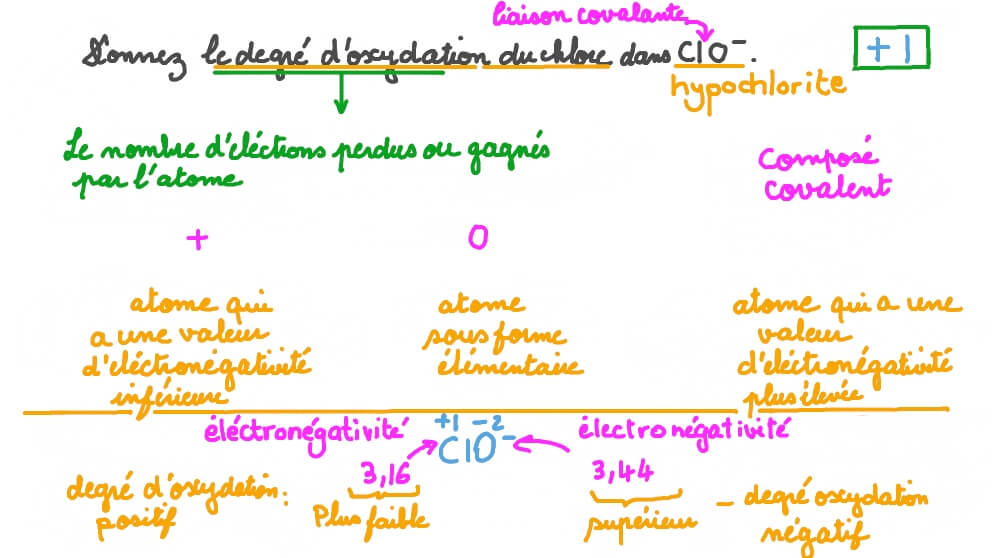 liaison covalante
Donnez le degré d'oxydation du chlore dans ClO⁻.
+1
hypochlorite
Le nombre d'eléctions perdus ou gagnés
par l'atome
Composé
covalent
+
0
atome qui
a une valeur
d'eléctronégativité
inférieure
atome
sous forme
élémentaire
atome qui a une
valeur
d'eléctronégativité
plus élevée
éléctronégativité
+1 -2
ClO⁻
électronégativité
3,16
3,44
degré d'oxydation:
positif
Plus faible
supérieur
- degré oxydation
négatif